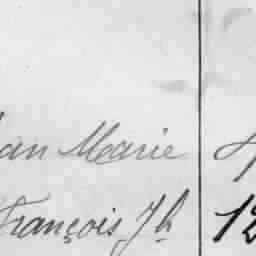 ean Marie
François Jh 12